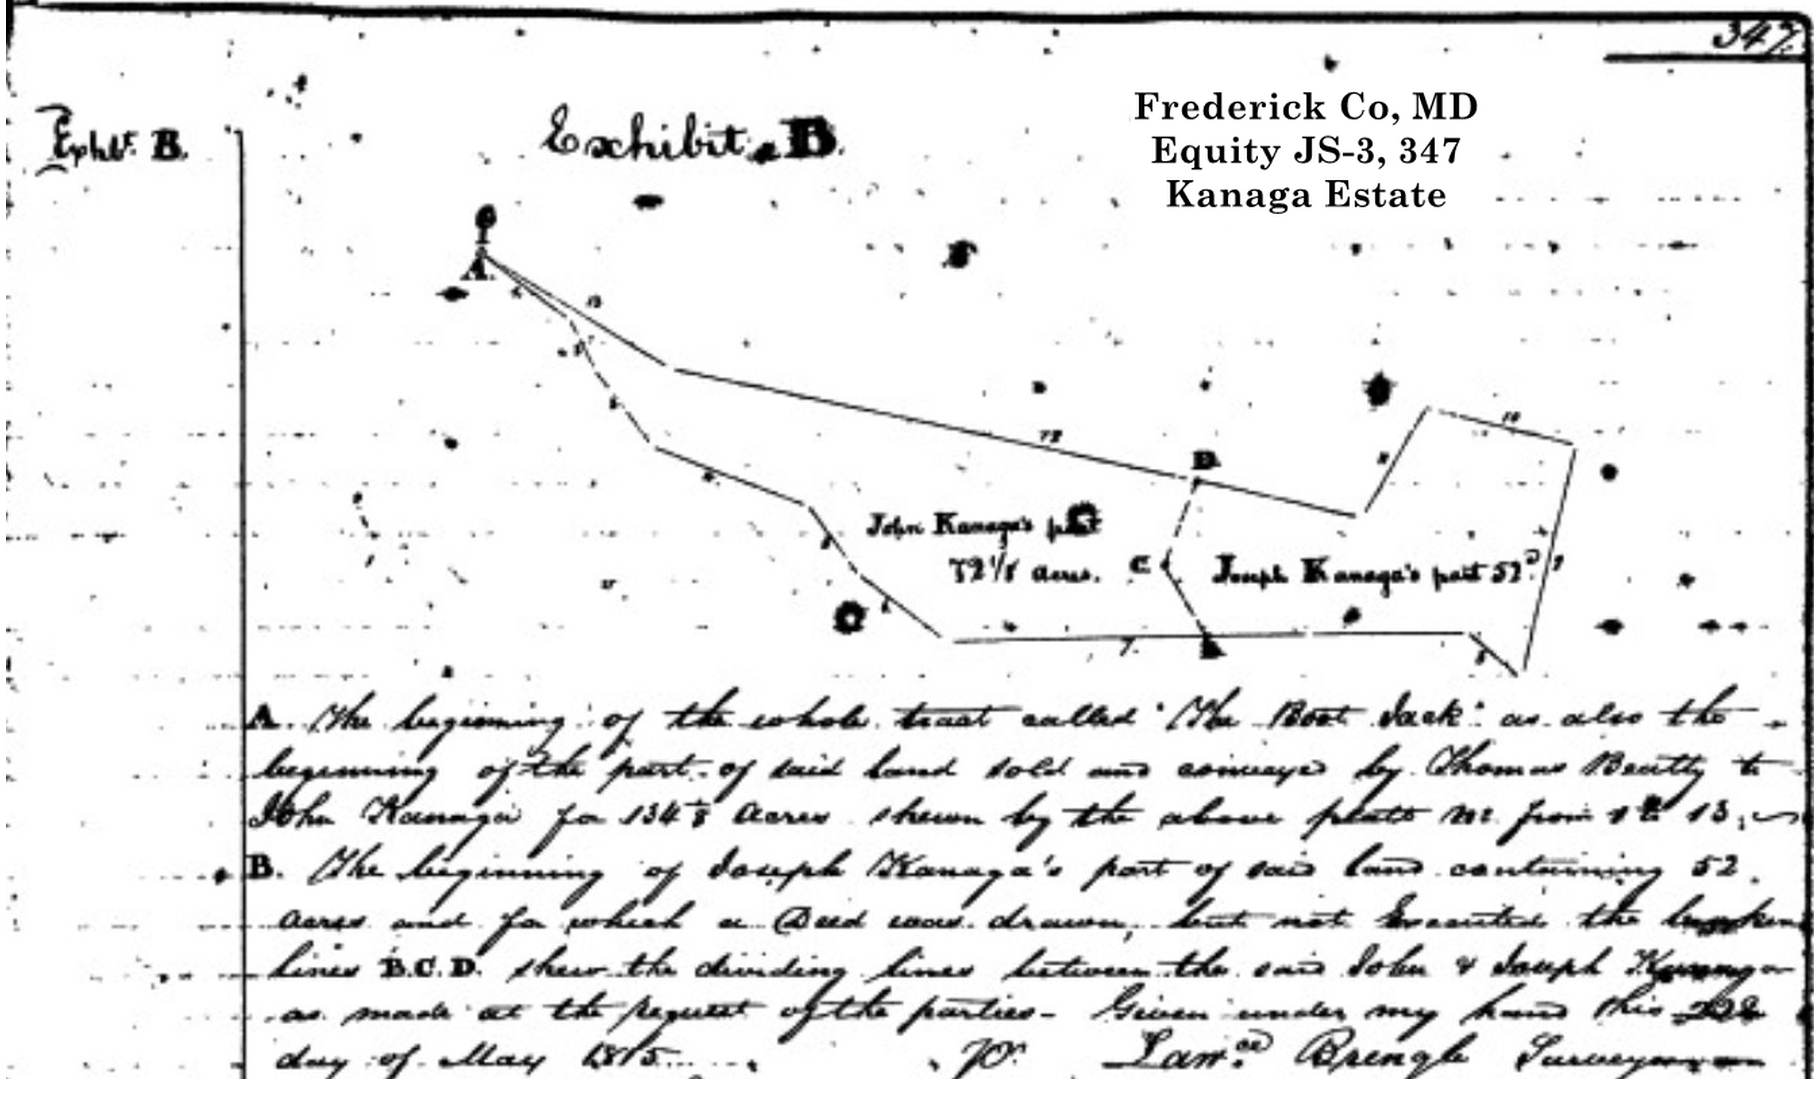 347.
Frederick Co, MD
Equity JS-3, 347
Kanaga Estate
Exhbt. B.
Exhibit B.
A.
12
D.
10
9
John Kanaga's part
72 1/8 acres. C
Joseph Kanaga's part 52
7.
A. The beginning of the whole tract called "The Boot Jack" as also the
beginning of the part of said land sold and conveyed by Thomas Beatty to
John Kanaga for 134 1/8 Acres shewn by the above platt No. from 1 to 13.
B. The beginning of Joseph Kanaga's part of said land containing 52
acres and for which a Deed was drawn, but not Executed the
lines B.C.D. shew the dividing lines between the said John & Joseph Kanaga
as made at the request of the parties - Given under my hand this
day of May 1815. Law.ce Brengle Surveyor